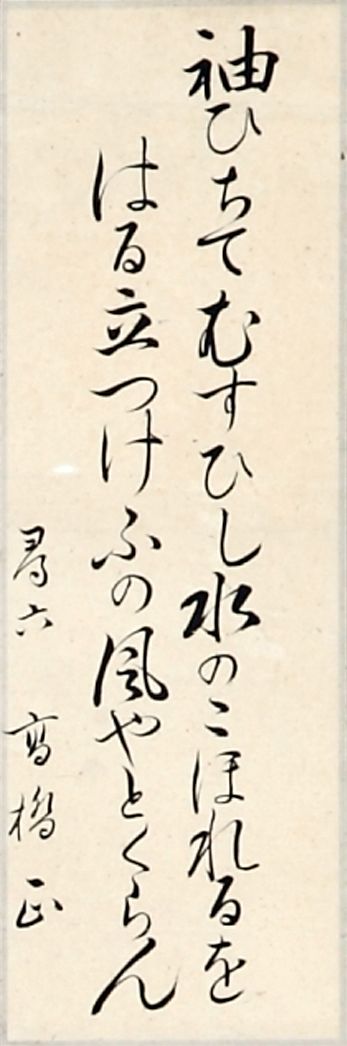 袖ひちてむすひし水のこほれるを
はる立つけふの風やとくらん
尋六 高橋正